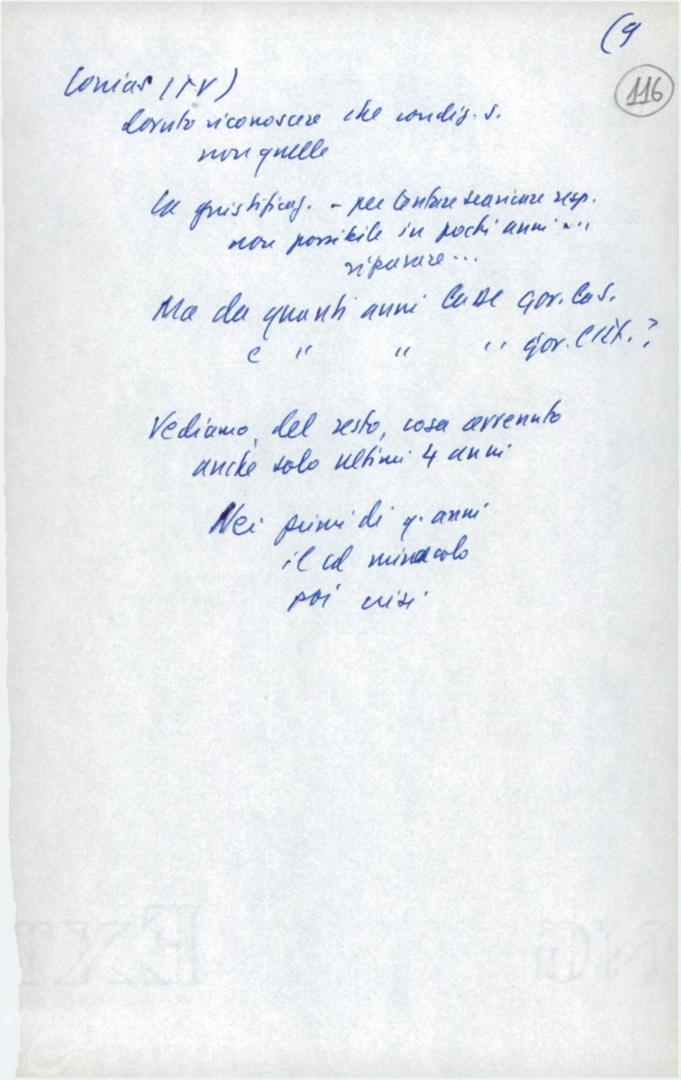 (9
116
Corrias (TV)
dovuto riconoscere che condiz. s.
non quelle
la giustificaz. - per tentare scaricare resp.
non possibile in pochi anni ...
riparare ...
Ma da quanti anni Case gov. Cas.
e " " " gov. CRIX.?
Vediamo, del resto, cosa avvenuto
anche solo ultimi 4 anni
Nei primi di q. anni
il cd miracolo
poi crisi